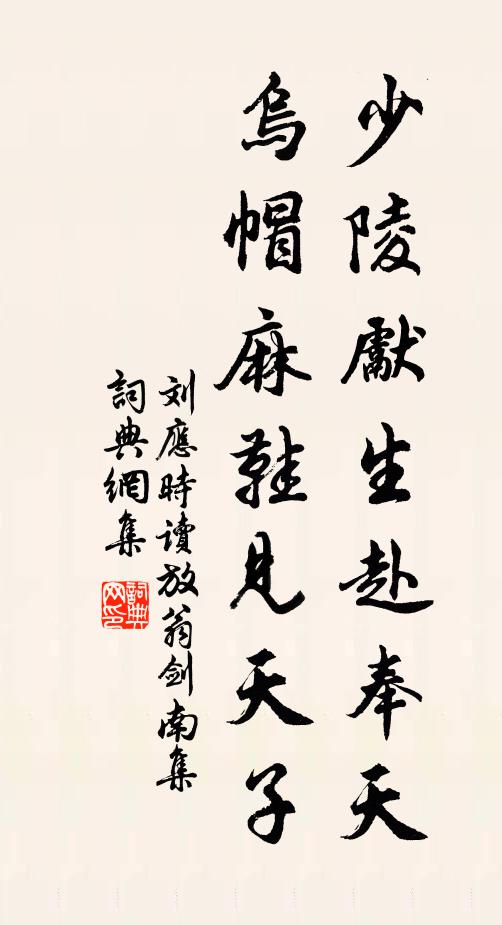 少陵獻生赴奉天
烏帽麻鞋見天子
刘應時读放翁剑南集
詞典網集
詞典网印